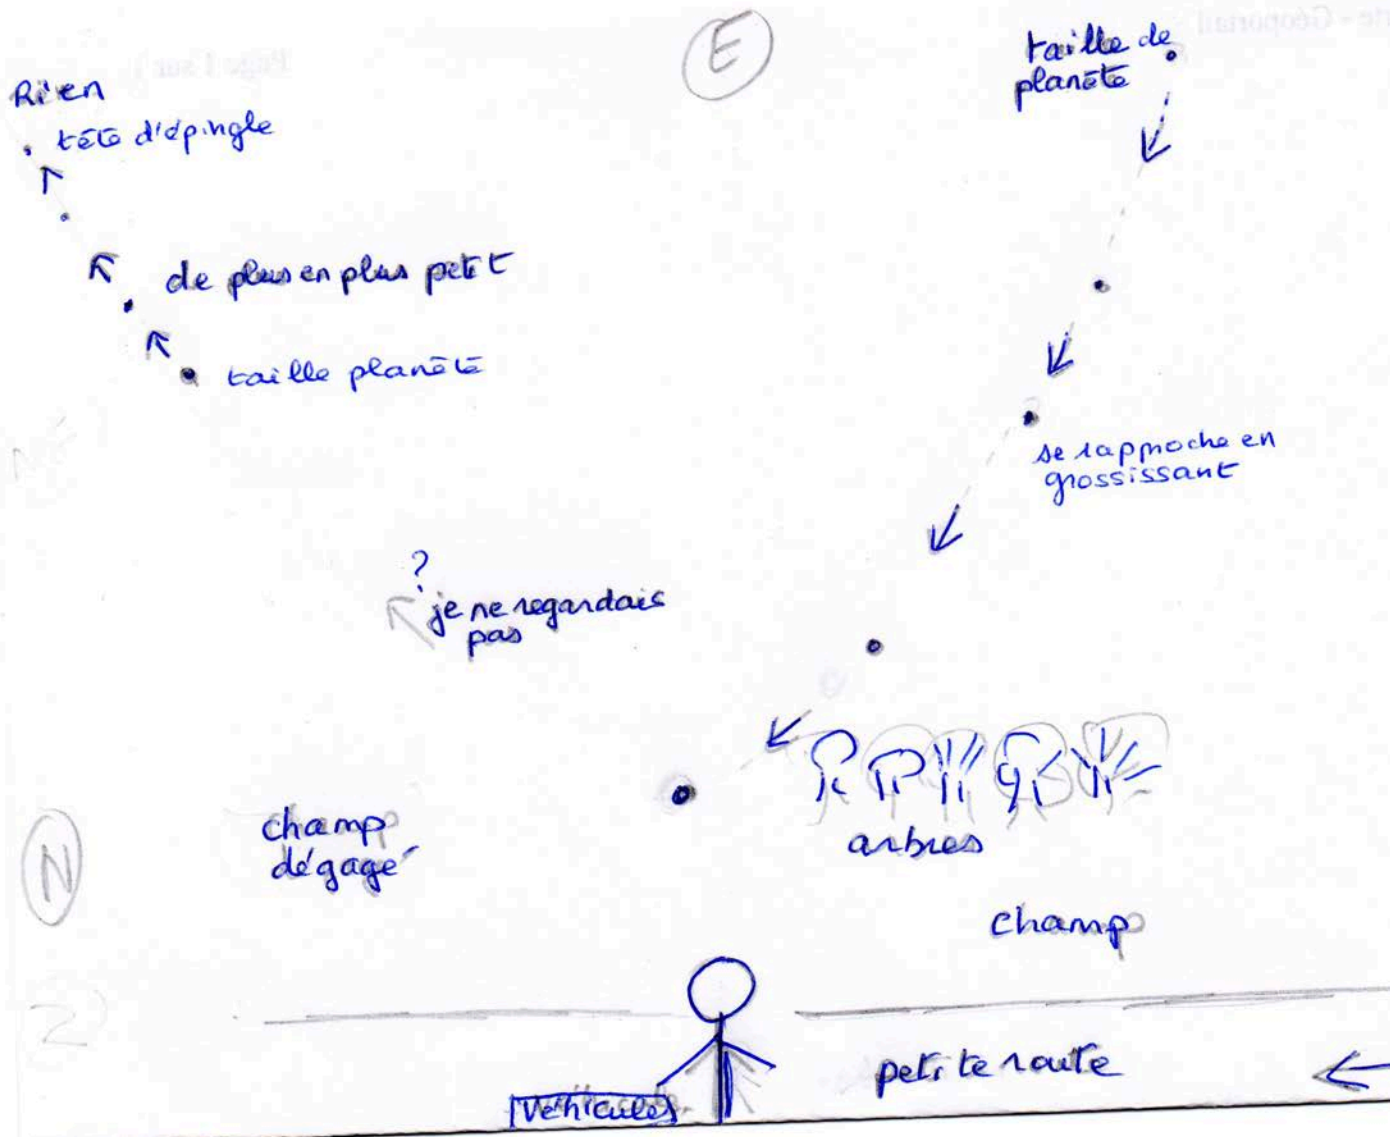 E
taille de
planète
Rien
tête d'épingle
de plus en plus petit
taille planète
se rapproche en
grossissant
?
je ne regardais
pas
champ
dégagé
arbres
N
champ
petite route
véhicules